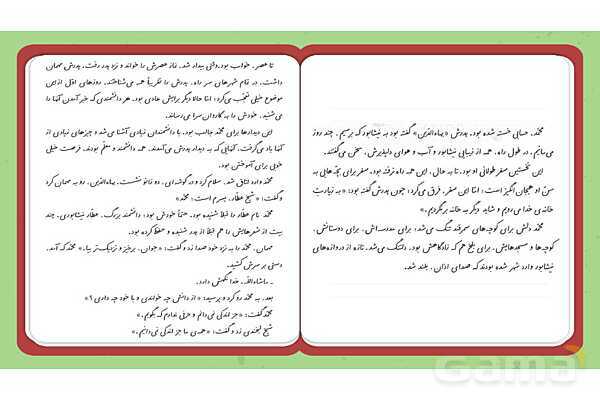 محمّد، حسابی خسته شده بود. پدرش «بهاءالدّین» گفته بود به نیشابور که برسیم، چند روز
می‌مانیم. در طول راه، همه از زیبایی نیشابور و آب و هوای دلپذیرش، سخن می‌گفتند.
این نخستین سفر طولانی او بود. تا به حال، این همه راه نرفته بود. سفر برای بچّه‌هایی به
سنّ او هیجان‌انگیز است؛ امّا این سفر، فرق می‌کرد؛ چون پدرش گفته بود: «به زیارتِ
خانه‌ی خدا می‌رویم و شاید دیگر به خانه برنگردیم.»
محمّد دلش برای کوچه‌های سمرقند تنگ می‌شد، برای مدرسه‌اش، برای دوستانش،
کوچه‌ها و مسجدهایش، برای بلخ هم که زادگاهش بود، دلتنگ می‌شد. تازه از دروازه‌های
نیشابور وارد شهر شده بودند که صدای اذان، بلند شد.
تا عصر، خواب بود. وقتی بیدار شد، نماز عصرش را خواند و نزد پدر رفت. پدرش مهمان
داشت. در تمام شهرهای سر راه، پدرش را تقریباً همه می‌شناختند. روزهای اوّل از این
موضوع خیلی تعجّب می‌کرد؛ امّا حالا دیگر برایش عادی بود. هر دانشمندی که خبر آمدن آنها را
می‌شنید، خودش را به کاروان‌سرا می‌رساند.
این دیدارها برای محمّد جالب بود. با دانشمندان زیادی آشنا می‌شد و چیزهای زیادی از
آنها یاد می‌گرفت. آنهایی که به دیدار پدرش می‌آمدند، همه دانشمند و معلّم بودند. فرصت خیلی
خوبی برای آموختن بود.
محمّد وارد اتاق شد. سلام کرد و در گوشه‌ای، دو زانو نشست. بهاءالدّین، رو به مهمان کرد
و گفت: «شیخ عطّار، پسرم است؛ محمّد»
محمّد نام عطّار را قبلاً شنیده بود. حتماً خودش بود، دانشمند بزرگ، عطّار نیشابوری. چند
بیت از شعرهایش را هم قبلاً از پدر شنیده و حفظ کرده بود.
مهمان، محمّد را به نزد خود صدا زد و گفت: «جوان، برخیز و نزدیک‌تر بیا.» محمّد که آمد،
دستی بر سرش کشید.
ـ ماشاءالله، خدا نگهش دارد.
بعد، به محمّد رو کرد و پرسید: «از دانش چه خواندی و با خود چه داری؟»
محمّد گفت: «جز اندکی نمی‌دانم و حرفی ندارم که بگویم.»
شیخ لبخندی زد و گفت: «همه‌ی ما جز اندکی نمی‌دانیم.»
Gama